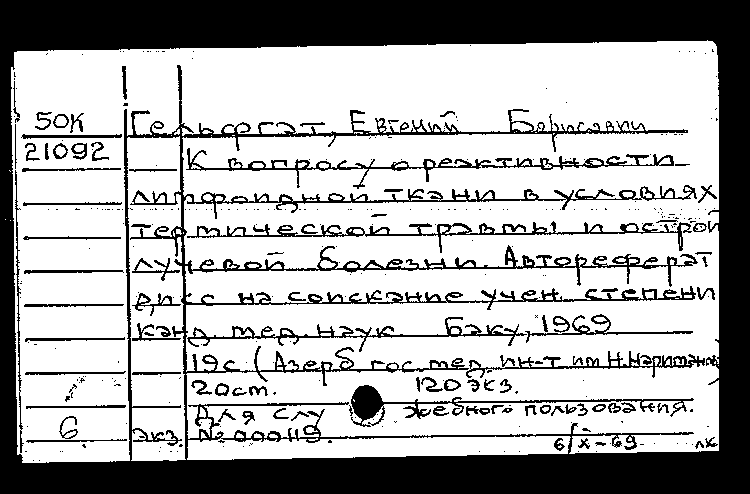 50К Гельфгат, Евгений Борисович
21092 К вопросу о реактивности
лимфоидной ткани в условиях
термической травмы и острой
лучевой болезни. Автореферат
дисс на соискание учен. степени
канд. мед. наук Баку, 1969
19с (Азерб гос. мед. ин-т им Н. Нариманова)
20см. 120 экз.
Для служебного пользования.
6. экз. № 000119.
6/X-69 лк